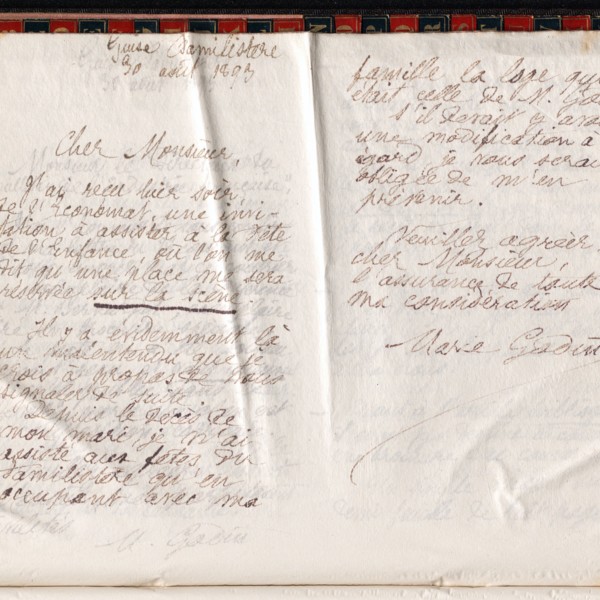 Guise Familistère
30 août 1897
Cher Monsieur,
J'ai reçu hier soir,
de l'Economat, une invi-
tation à assister à la Fête
de l'Enfance, où l'on me
dit qu'une place me sera
réservée sur la scène.
Il y a évidemment là
un malentendu que je
crois à propos de vous
signaler de suite.
Depuis le décès de
mon mari, je n'ai
assisté aux fêtes du
Familistère qu'en
occupant avec ma
famille la loge qui
était celle de M. Go
S'il devait y avo
une modification à
égard je vous serai
obligée de m'en
prévenir.
Veuillez agréer
cher Monsieur,
l'assurance de toute
ma considération
Marie Godin
M. Godin